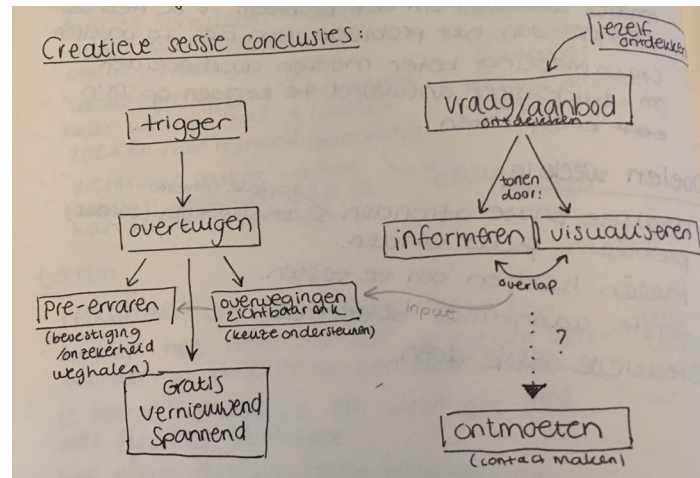 Creatieve sessie conclusies:
trigger
overtuigen
pre-ervaren
(bevestiging
/onzekerheid
weghalen)
overwegingen
zichtbaar
(keuze ondersteunen)
Gratis
vernieuwend
Spannend
jezelf
ontdekken
vraag/aanbod
ontdekken
tonen
door:
informeren
visualiseren
overlap
input
?
ontmoeten
(contact maken)